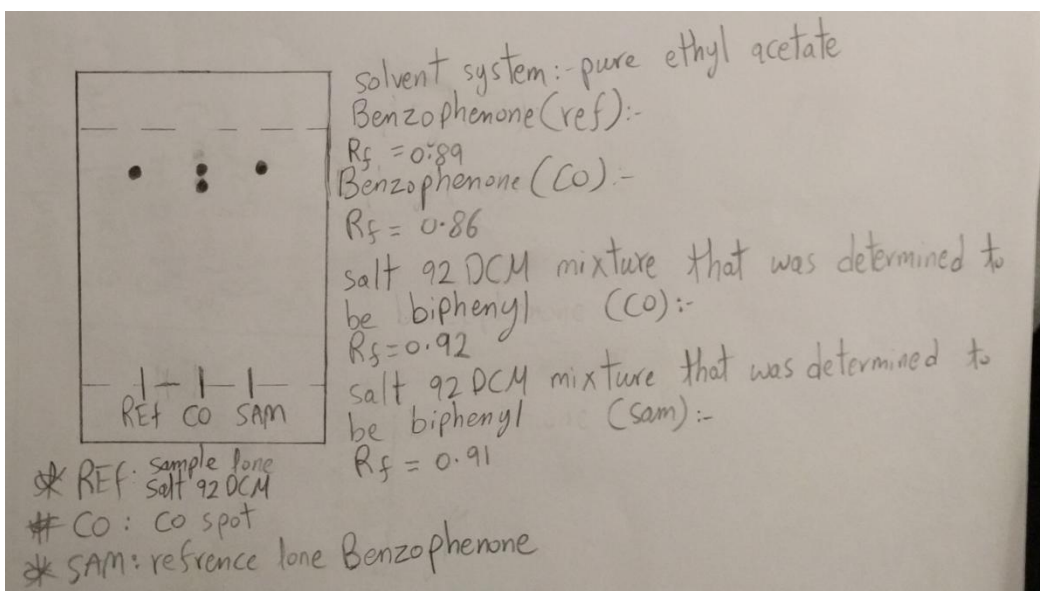 solvent system:- pure ethyl acetate
Benzophenone (ref):-
Rf = 0.89
Benzophenone (CO):-
Rf = 0.86
salt 92 DCM mixture that was determined to
be biphenyl (CO):-
Rf = 0.92
salt 92 DCM mixture that was determined to
be biphenyl (sam):-
Rf = 0.91
REf CO SAM
* REF: sample lone
salt 92 DCM
# CO: co spot
* SAM: refrence lone Benzophenone